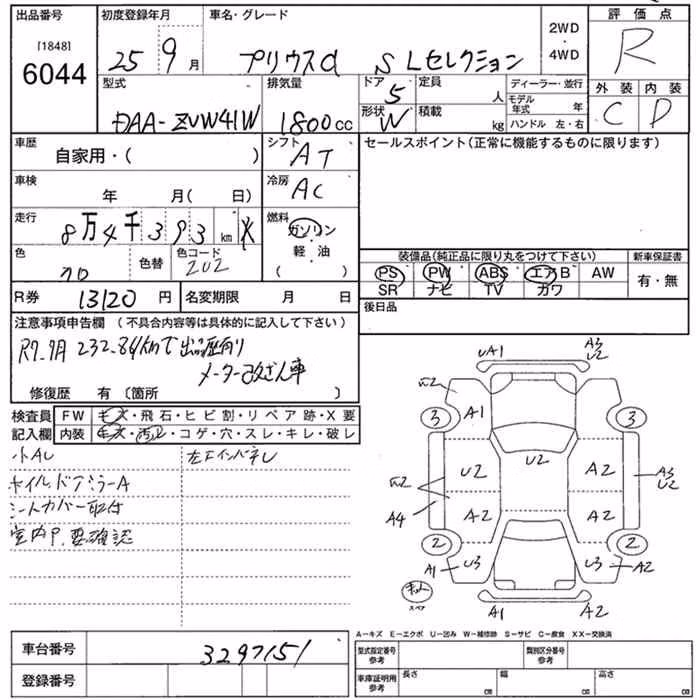 出品番号 初度登録年月 車名・グレード 2WD・4WD 評価点
[1848]
6044
25 9月 プリウスα SLセレクション R
型式 排気量 ドア 5 定員 人 ディーラー・並行 外装 内装
DAA-ZVW41W 1800cc 形状 W 積載 kg モデル年式 年 C D
ハンドル 左・右
車歴 自家用・( ) シフト AT セールスポイント(正常に機能するものに限ります)
車検 年 月( 日) 冷房 AC
走行 8万4千393km 燃料 ガソリン・軽・油 ( )
色 色替 色コード 202
装備品(純正品に限り丸をつけて下さい) 新車保証書
PS PW ABS エアB AW 有・無
SR ナビ TV カワ
R券 13120円 名変期限 月 日 後日品
注意事項申告欄(不具合内容等は具体的に記入して下さい)
R7.9月 232.864kmで出品歴有り
メーター改ざん車
修復歴 有〔箇所 〕
検査員 FW キズ・飛石・ヒビ割・リペア跡・X要
記入欄 内装 キズ・汚れ・コゲ・穴・スレ・キレ・破レ
小AU 左Fインパネレ
ホイルドアミラーA
シートカバー取付
室内P.要確認
UA1 A3 U2
A1
3 3
U2 U2 A2 A3 U2
A4 A2 A2
2 2
A1 U3 U3 A2
スペア A1 A2
A-キズ E-エクボ U-凹み W-補修跡 S-サビ C-腐食 XX-交換済
車台番号 3297151 型式指定番号 参考 類別区分番号 参考
登録番号 車庫証明用 参考 長さ cm 幅 cm 高さ cm